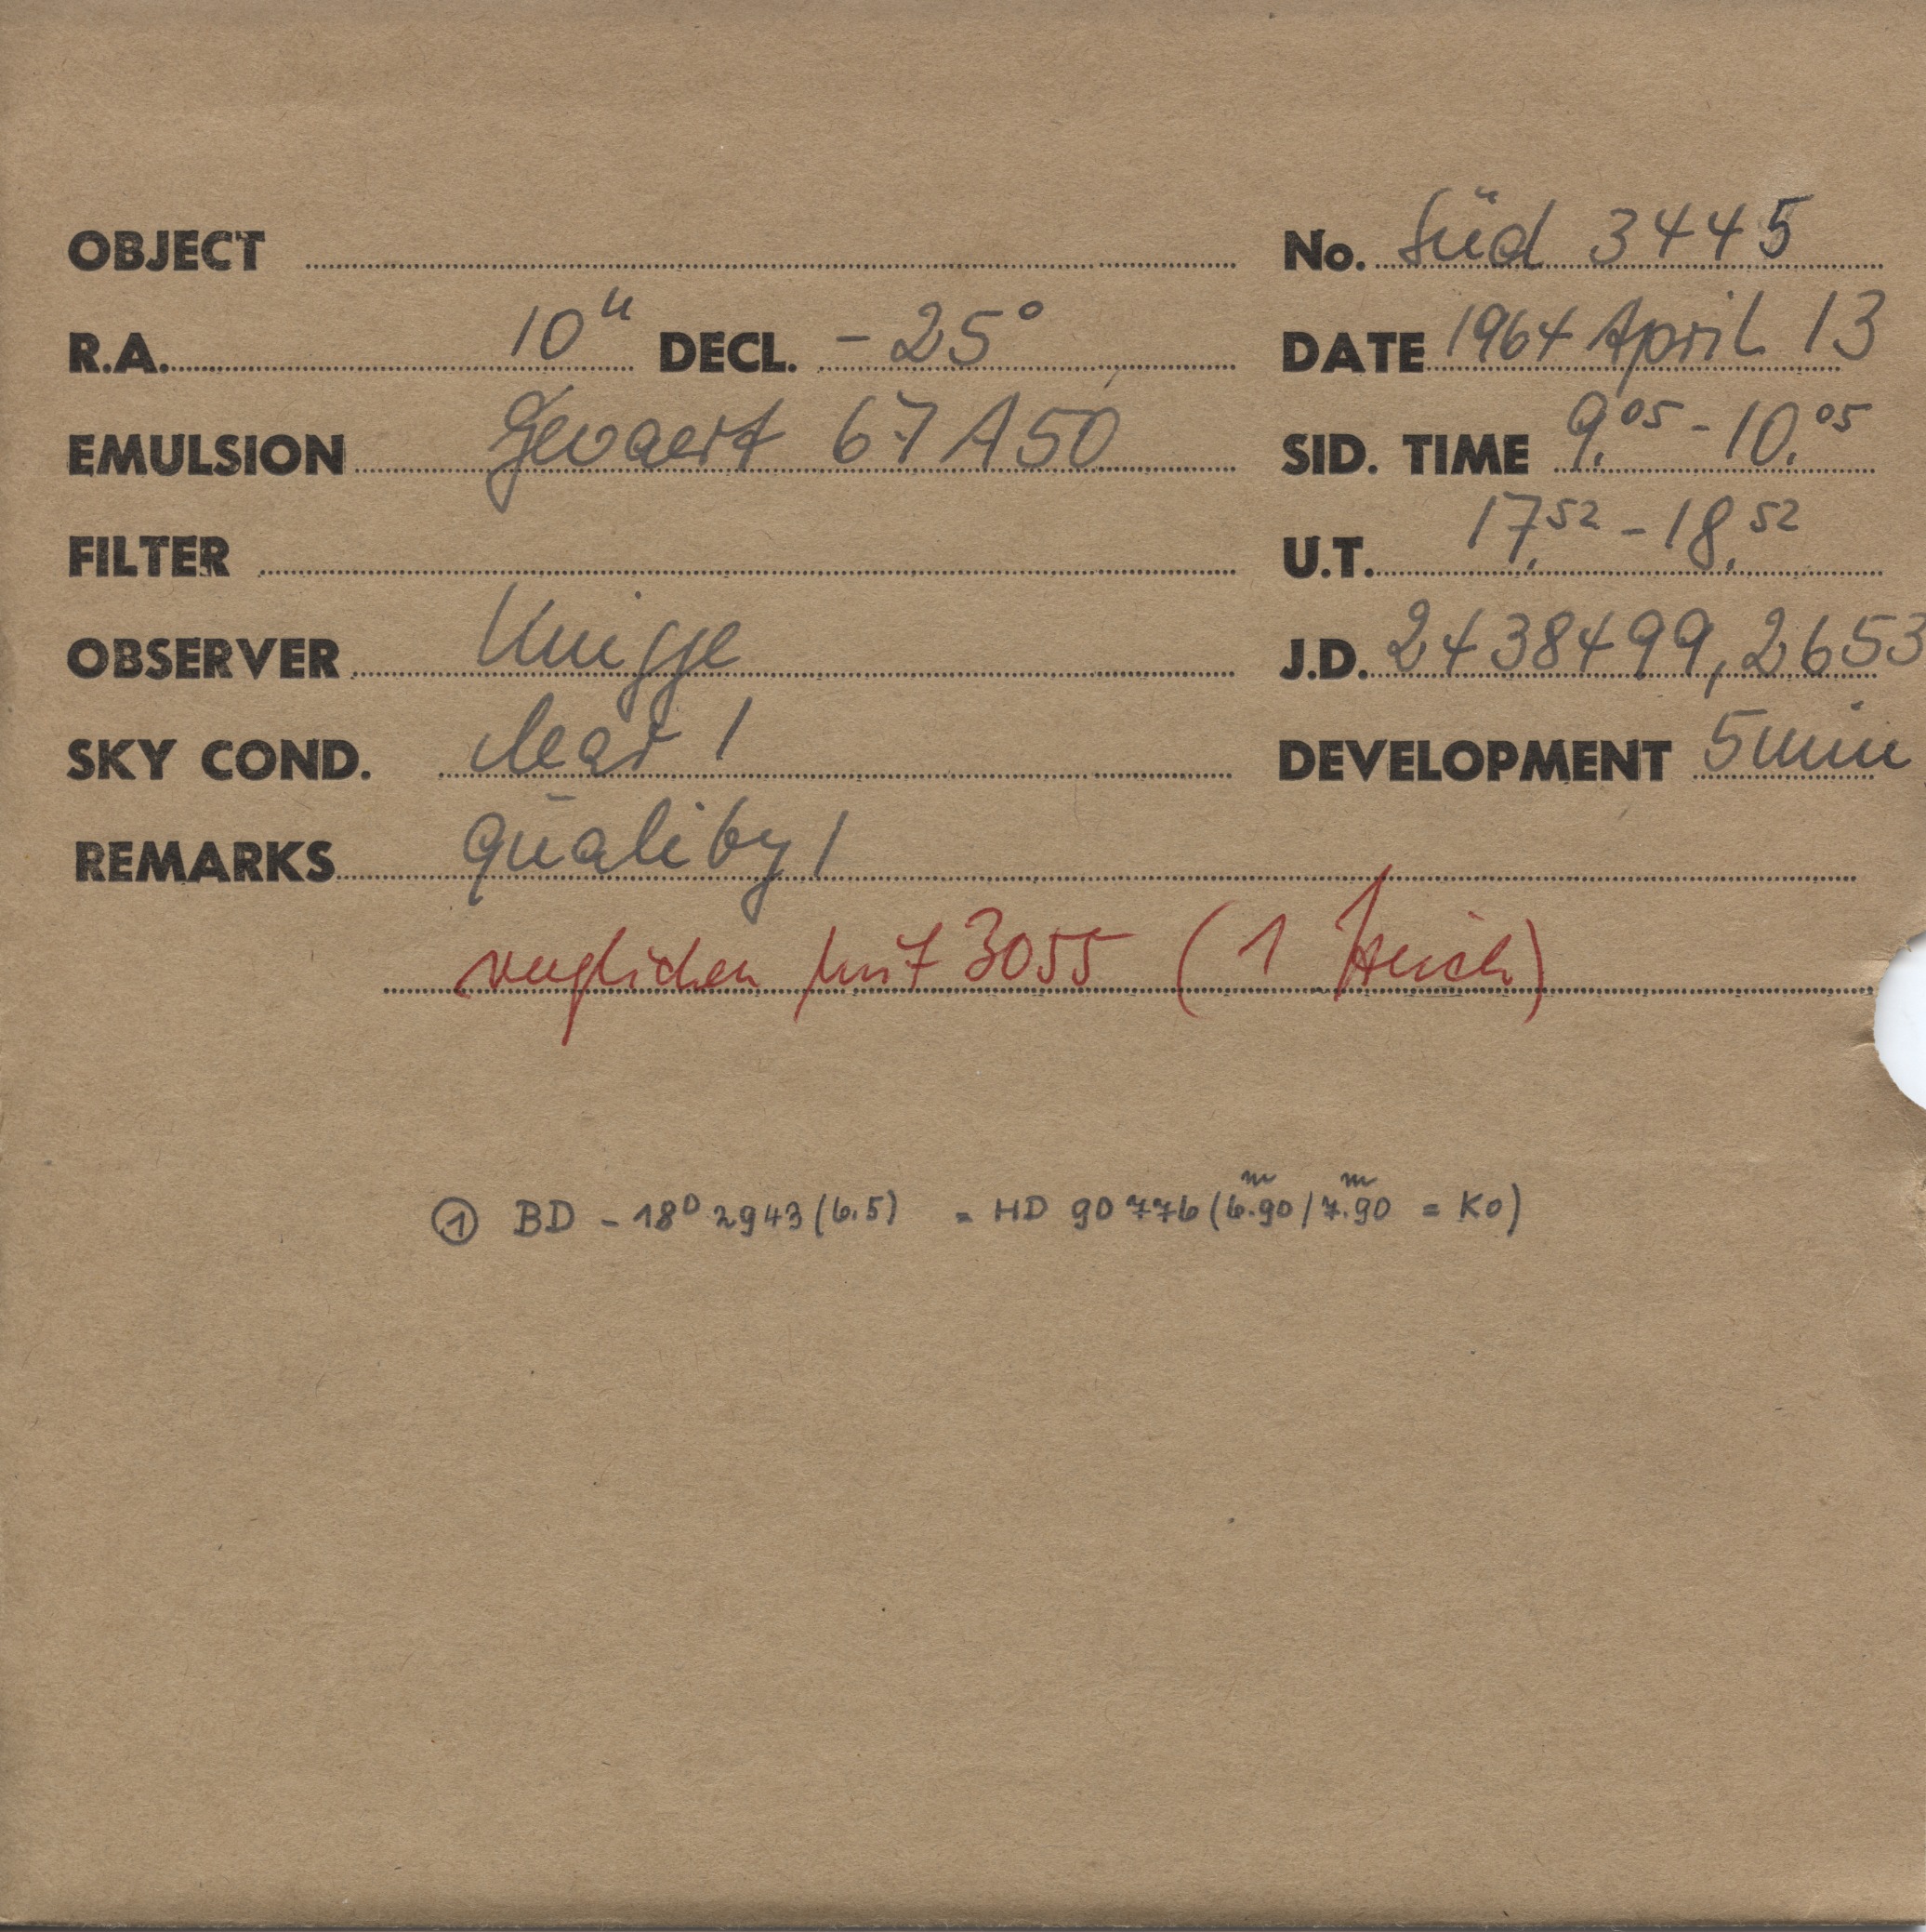 OBJECT No. Süd 3445
R.A. 10h DECL. -25° DATE 1964 April 13
EMULSION Gevaert 67A50 SID. TIME 9.05 - 10.05
FILTER U.T. 17.52 - 18.52
OBSERVER Knigge J.D. 2438499,2653
SKY COND. clear 1 DEVELOPMENT 5 min
REMARKS quality 1
verglichen mit 3055 (1 Strich)
① BD -18° 2943 (6.5) = HD 90776 (6.90m / 7.90m = K0)